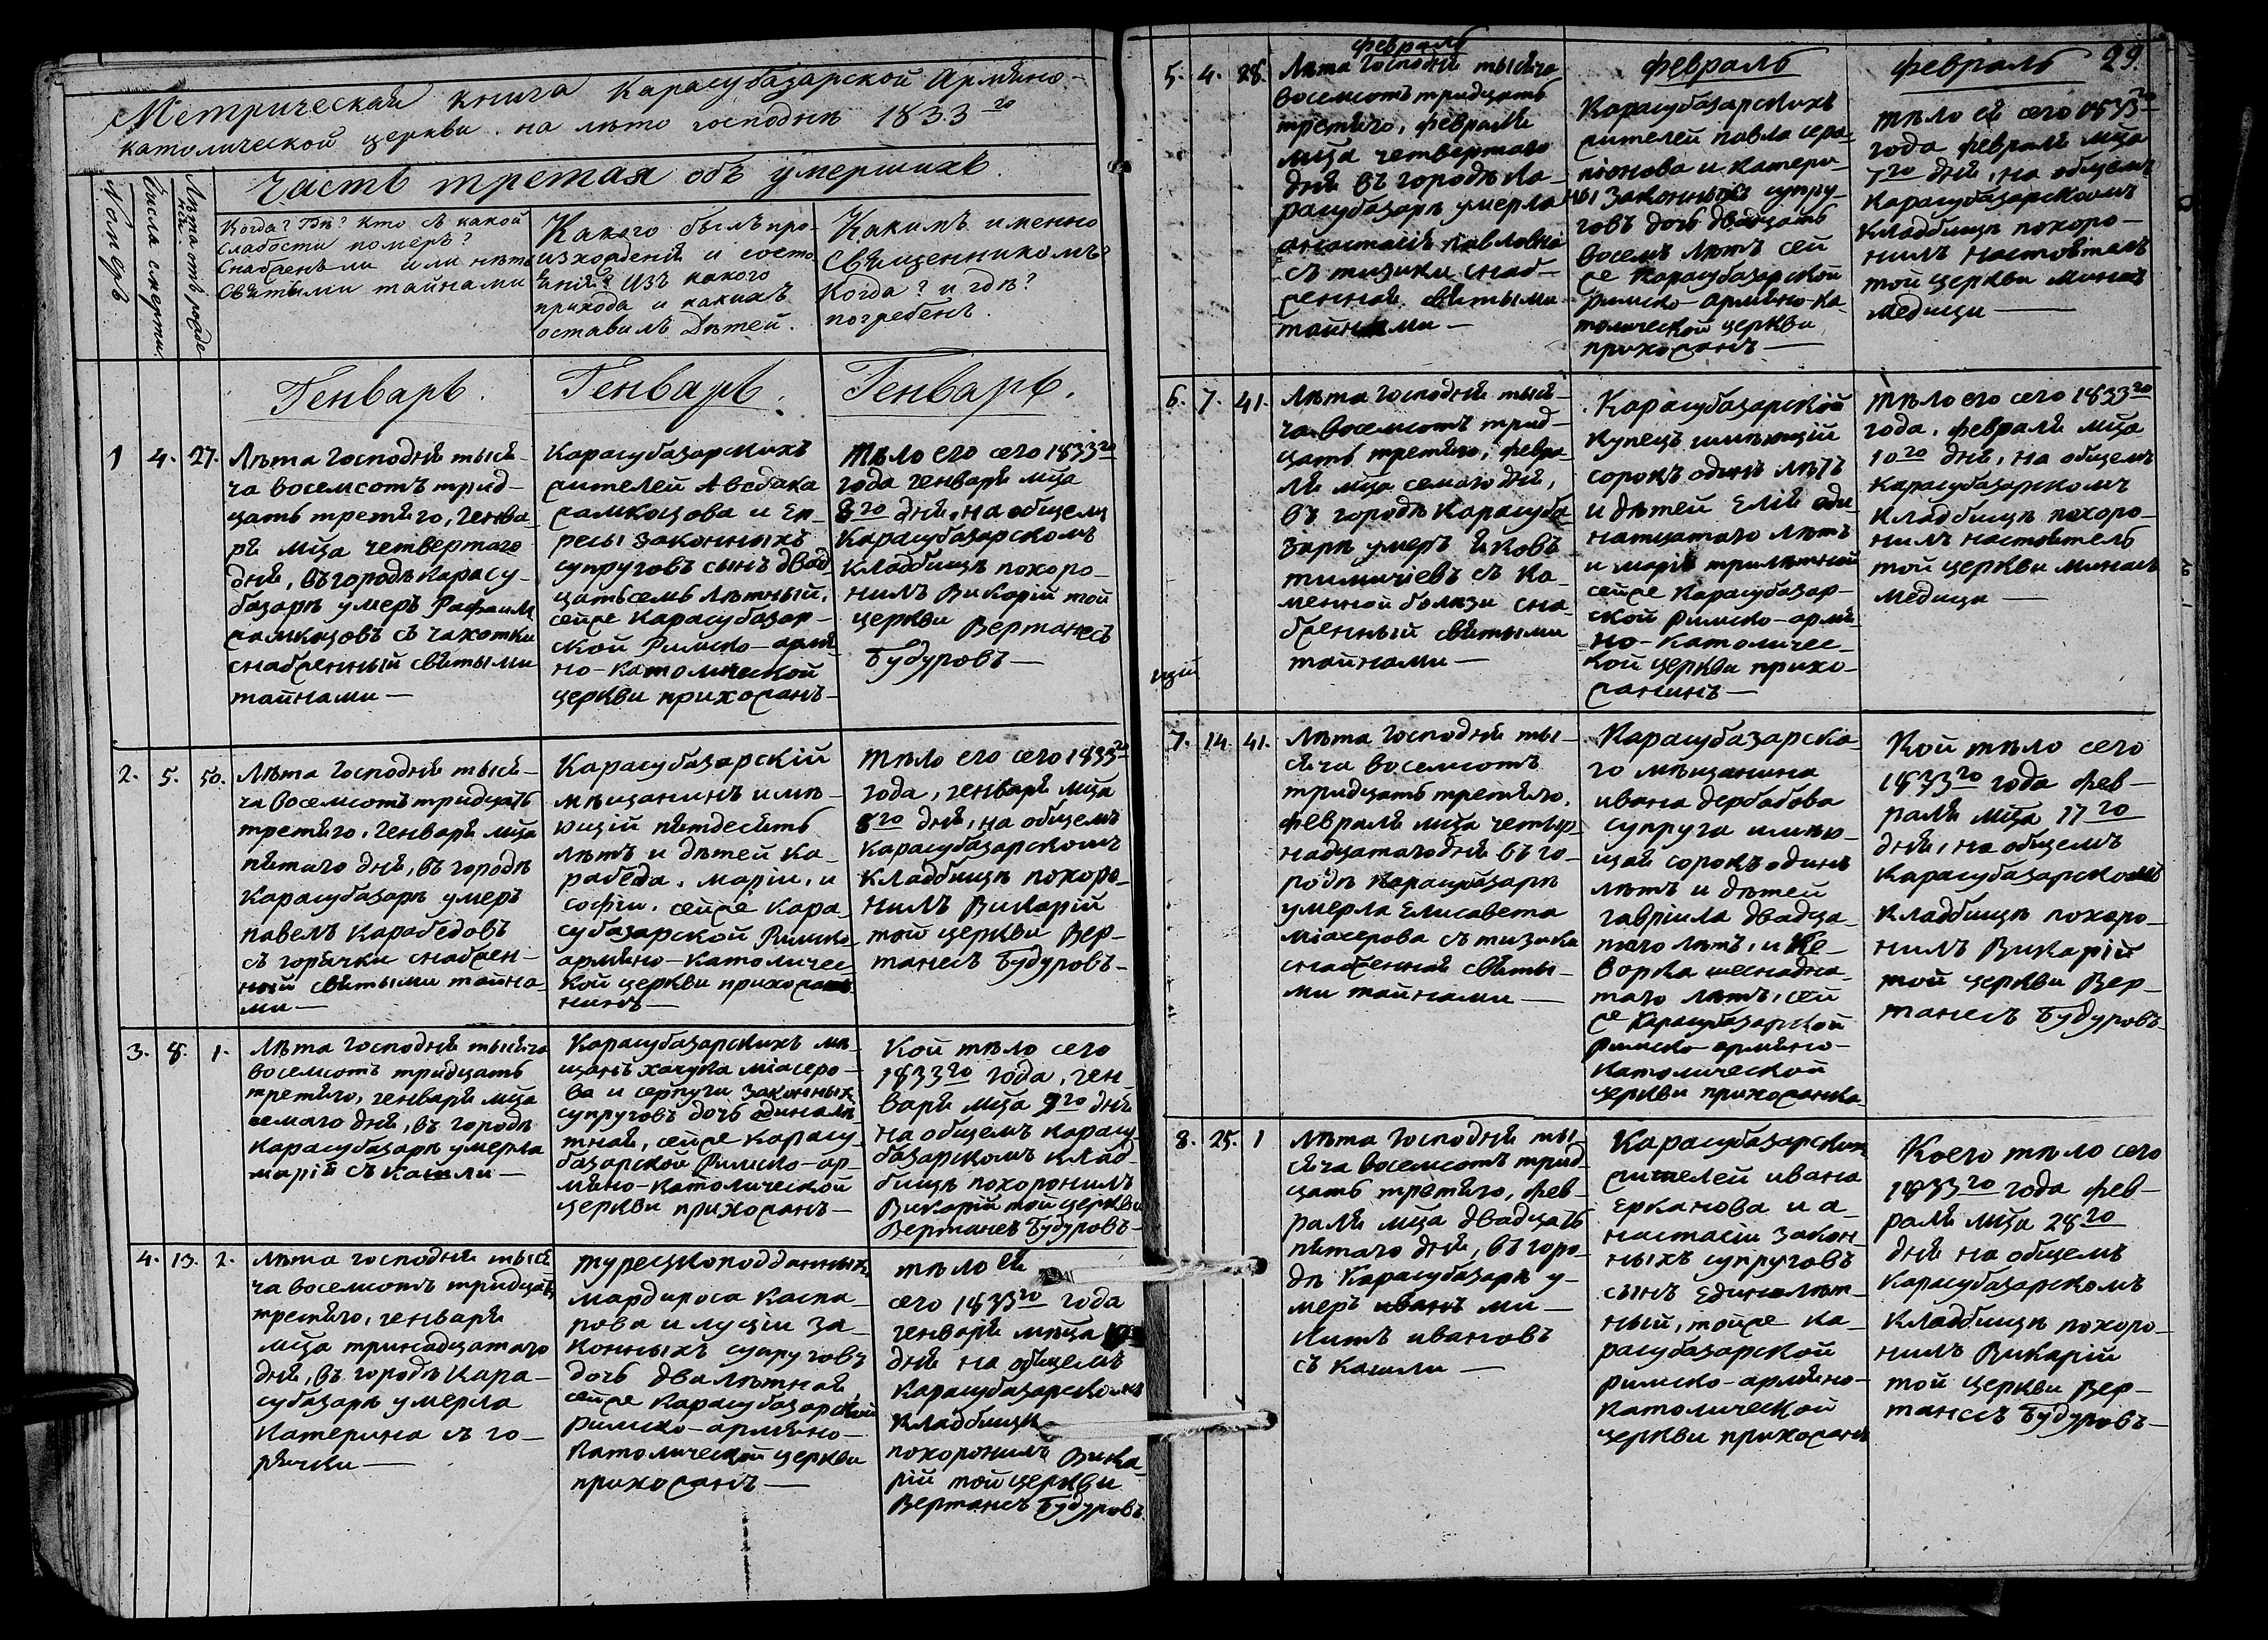 Метрическая книга Карасубазарской Армяно-
католической церкви на лѣто господнѣ 1833го
Часть третая объ умершихъ.
Номеръ
Числа смерти.
Лѣта отъ рожде
нія.
Когда? Гдѣ? Кто съ какой
слабости померъ?
Снабженъ ли или нѣтъ
Святыми тайнами
Какого былъ про-
изхожденія и состо
янія? Изъ какого
прихода и какихъ
оставилъ дѣтей.
Какимъ именно
Священникомъ?
Когда? и гдѣ?
погребенъ.
Генварь.
Генварь.
Генварь.
1
4.
27.
Лѣта Господня тыся-
ча восемсотъ трид-
цать третяго, Генва-
ря мца четвертаго
дня, въ городѣ Карасу-
базарѣ умеръ Рафаилъ
жамкоцовъ съ чахотки
снабженный святыми
тайнами —
Карасубазарскихъ
жителей Авсдака
жамкоцова и Еп-
ресы законныхъ
супруговъ сынъ двад
цать семь лѣтный,
сейже Карасубазар-
ской Римско-армя
но-католической
церкви прихожанъ—
Тѣло его сего 1833го
года генваря мца
8го дня, на общемъ
Карасубазарскомъ
кладбищѣ похоро-
нилъ Викарій той
церкви Вертанесъ
Будуровъ—
2.
5.
50.
Лѣта Господня тыся-
ча восемсотъ тридцать
третяго, Генваря мца
пятаго дня, въ городѣ
Карасубазарѣ умеръ
павелъ Карабедовъ
съ горячки снабжен-
ной святыми тайна-
ми—
Карасубазарскій
мѣщанинъ имѣ-
ющій пятдесятъ
лѣтъ и дѣтей Ка-
рабеда, маріи, и
софіи, сейже Кара
субазарской Римско-
армяно-католичес
кой церкви прихожа
нинъ—
Тѣло его сего 1833го
года, генваря мца
8го дня, на общемъ
Карасубазарскомъ
кладбищѣ похоро-
нилъ Викарій
той церкви Вер-
танесъ Будуровъ-
3.
8.
1.
Лѣта Господня тысяча
восемсотъ тридцать
третяго, генваря мца
семаго дня, въ городѣ
Карасубазарѣ умерла
марія съ кашли—
Карасубазарскихъ мѣ-
щанъ хачука міасеро-
ва и серпуги законныхъ
супруговъ дочь одинлѣ
тная, сейже Карасу-
базарской Римско-ар-
мяно-католической
церкви прихожанъ—
Кой тѣло сего
1833го года, ген-
варя мца 9го дня
на общемъ карасу-
базарскомъ клад
бищѣ похоронилъ
Викарій той церкви
Вертанесъ Будуровъ-
4.
13.
2.
Лѣта господня тыся
ча восемсотъ тридцать
третяго, генваря
мца тринадцатаго
дня, въ городѣ Кара-
субазарѣ умерла
Катерина съ го-
рячки—
Турецкоподданныхъ
мардироса каспа-
рова и луціи за-
конныхъ супруговъ
дочь двалѣтная,
сейже Карасубазарской
Римско-армяно-
католической церкви
прихожанъ—
тѣло ея
сего 1833го года
генваря мѣца
дня на общемъ
Карасубазарскомъ
кладбищѣ
похоронилъ Вика-
рій той церкви
Вертанесъ Будуровъ
29.
5.
4.
28.
февраль
Лѣта Господня тысяча
восемсотъ тридцать
третяго, февраля
мца четвертаго
дня въ городѣ Ка-
расубазарѣ умерла
анастасія павловна
съ тизики снаб-
женная святыми
тайнами—
февраль
Карасубазарскихъ
жителей павла сера-
піонова и катери-
ны законныхъ супру-
говъ дочь двадцать
восемь лѣтъ сей
же Карасубазарской
римско-армяно-ка-
толической церкви
прихожанъ—
февраль
тѣло ея сего 1833го
года февраля мца
7го дня, на общемъ
Карасубазарскомъ
кладбищѣ похоро-
нилъ настоятель
той церкви минасъ
медици—
6.
7.
41.
Лѣта Господня тыся-
ча восемсотъ трид-
цать третяго, февра-
ля мца семаго дня,
въ городѣ Карасуба-
зарѣ умеръ яковъ
тимичіевъ съ Ка-
менной болѣзи сна-
бженный святыми
тайнами—
Карасубазарскій
купецъ имѣющій
сорокъ одинъ лѣтъ
и дѣтей Елія оди-
натцатаго лѣтъ
и марія трилѣтной
сейже Карасубазар-
ской Римско-армя-
но-католичес-
кой церкви прихо-
жанинъ—
Тѣло его сего 1833го
года, февраля мца
10го дня, на общемъ
Карасубазарскомъ
кладбищѣ похоро-
нилъ настоятель
той церкви минасъ
медици—
щій
7.
14.
41.
Лѣта Господня ты-
сяча восемсотъ
тридцать третяго,
февраля мца четыр-
надцатаго дня въ го-
родѣ Карасубазарѣ
умерла Елисавета
міасерова съ тизика
снабженная святы-
ми тайнами—
Карасубазарска-
го мѣщанина
ивана дербабова
супруга имѣю-
щая сорокъ одинъ
лѣтъ и дѣтей
гавріила двадца-
таго лѣтъ, и Ке-
ворка шеснадца-
таго лѣтъ, сей
же Карасубазарской
римско-армяно-
католической
церкви прихожанка
Кой тѣло сего
1833го года фев-
раля мца 17го
дня, на общемъ
Карасубазарскомъ
кладбищѣ похоро-
нилъ Викарій
той церкви Вер-
танесъ Будуровъ
8.
25.
1
Лѣта Господня ты-
сяча восемсотъ трид-
цать третяго, фев-
раля мца двадцать
пятаго дня, въ горо-
дѣ Карасубазарѣ у-
меръ ми-
китъ ивановъ
съ кашли—
Карасубазарскихъ
жителей ивана
Ерканова и а-
настасіи закон-
ныхъ супруговъ
сынъ единолѣт-
ный, тойже ка-
расубазарской
римско-армяно-
католической
церкви прихожанъ
Коего тѣло сего
1833го года фев-
раля мца 28го
дня на общемъ
Карасубазарскомъ
кладбищѣ похоро-
нилъ Викарій
той церкви Вер-
танесъ Будуровъ—